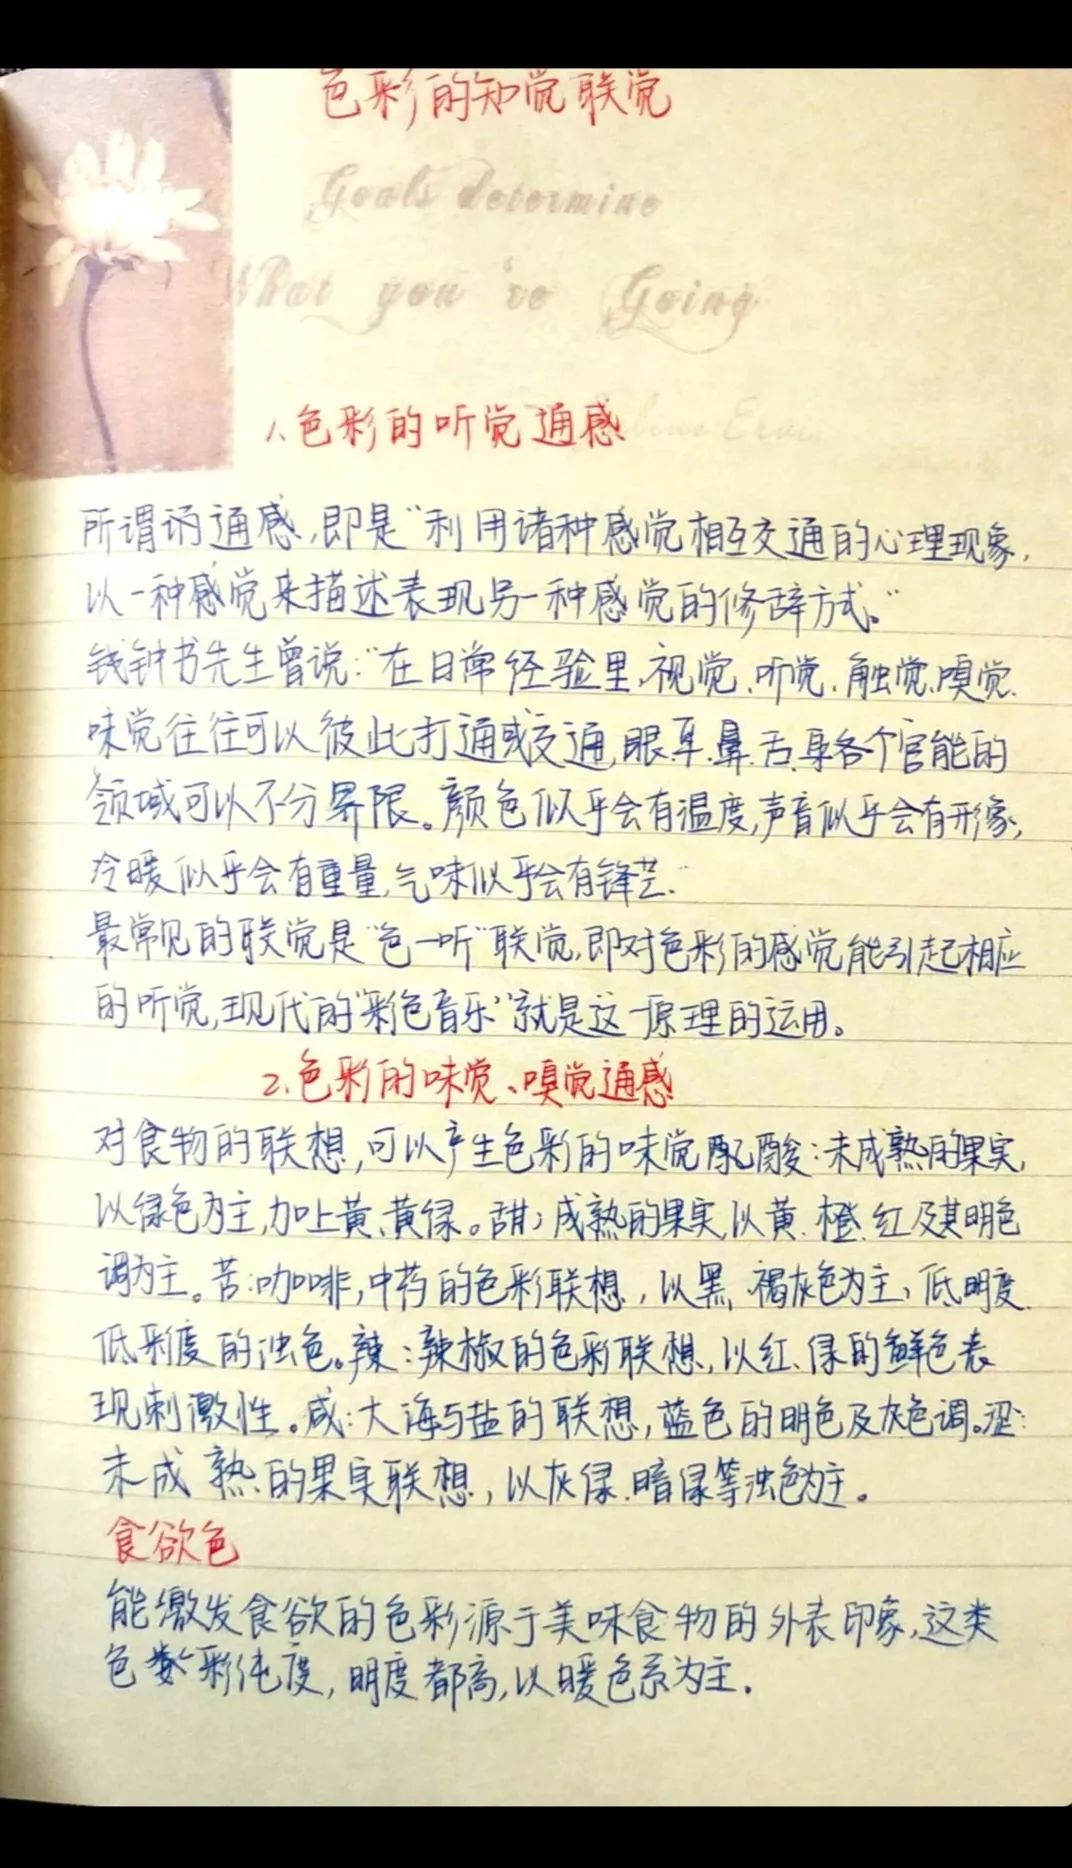 色彩的知觉联觉
Goals determine
What you're Going
1.色彩的听觉通感
所谓的通感,即是“利用诸种感觉相互交通的心理现象,
以一种感觉来描述表现另一种感觉的修辞方式。”
钱钟书先生曾说:“在日常经验里、视觉、听觉、触觉、嗅觉、
味觉往往可以彼此打通或交通,眼.耳.鼻.舌.身各个官能的
领域可以不分界限。颜色似乎会有温度,声音似乎会有形象,
冷暖似乎会有重量,气味似乎会有锋芒.
最常见的联觉是“色一听”联觉,即对色彩的感觉能引起相应
的听觉,现代的“彩色音乐”就是这一原理的运用。
2.色彩的味觉、嗅觉通感
对食物的联想,可以产生色彩的味觉 酸:未成熟的果实,
以绿色为主,加上黄、黄绿。甜:成熟的果实,以黄.橙.红及其明色
调为主。苦:咖啡,中药的色彩联想,以黑、褐灰色为主,低明度.
低彩度的浊色。辣:辣椒的色彩联想,以红、绿的鲜色表
现刺激性。咸:大海与盐的联想,蓝色的明色及灰色调。涩:
未成熟的果实联想,以灰绿.暗绿等浊色为主。
食欲色
能激发食欲的色彩源于美味食物的外表印象,这类
色彩纯度,明度都高,以暖色系为主.